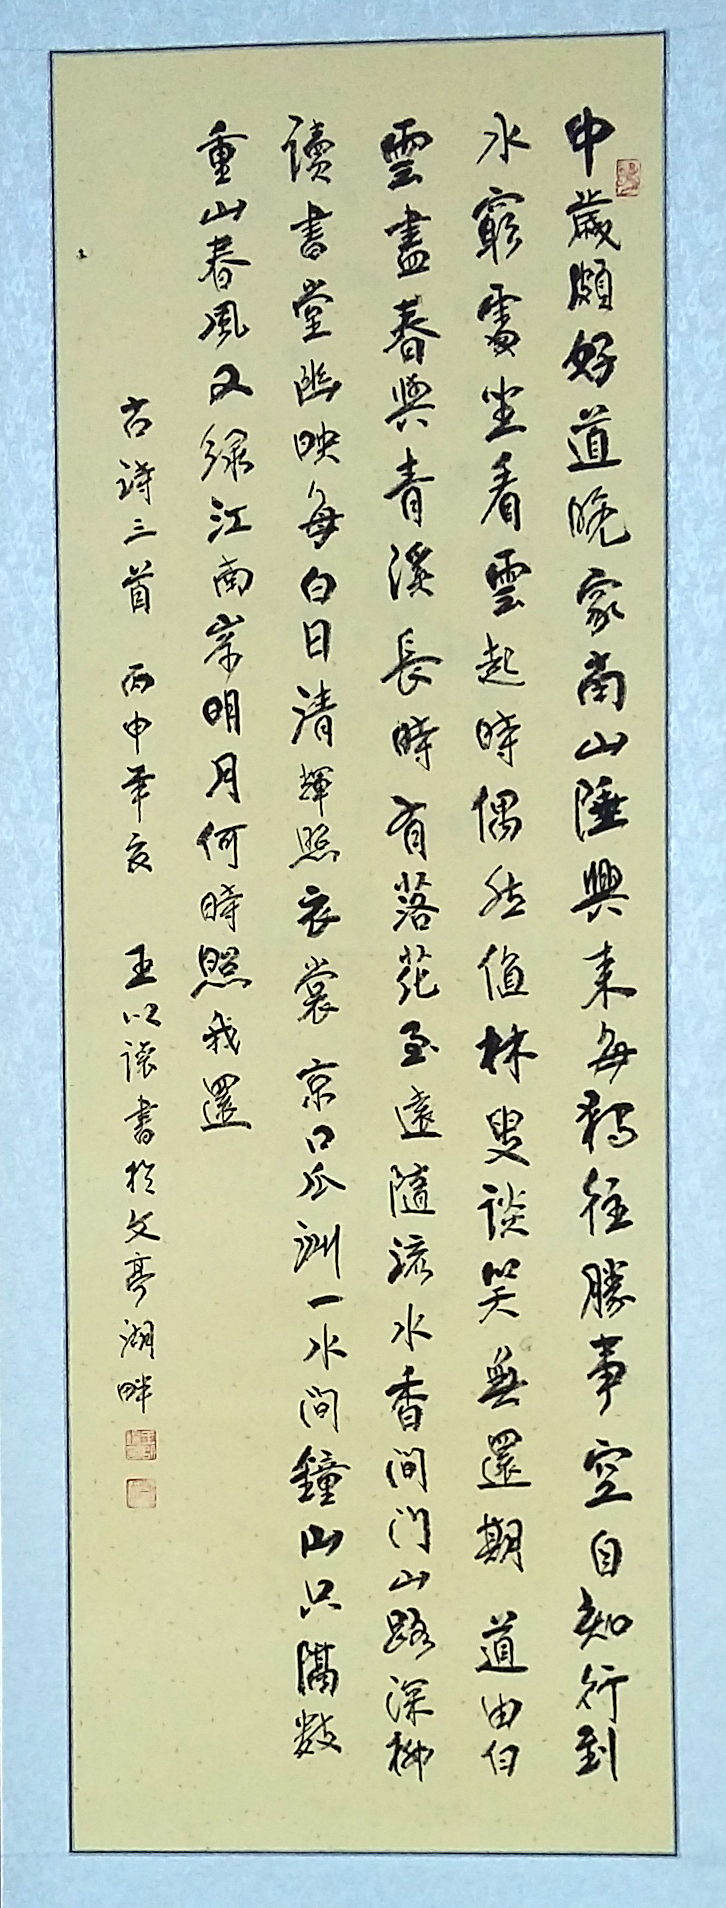 中歲頗好道晚家南山陲興来每獨往勝事空自知行到
水窮處坐看雲起時偶然值林叟談笑無還期 道由白
雲盡春與青溪長時有落花至遠隨流水香间门山路深柳
讀書堂幽映每白日清輝照衣裳 京口瓜洲一水间鐘山只隔数
重山春風又绿江南岸明月何時照我還
古詩三首 丙申年夏 王以讓書於文亭湖畔